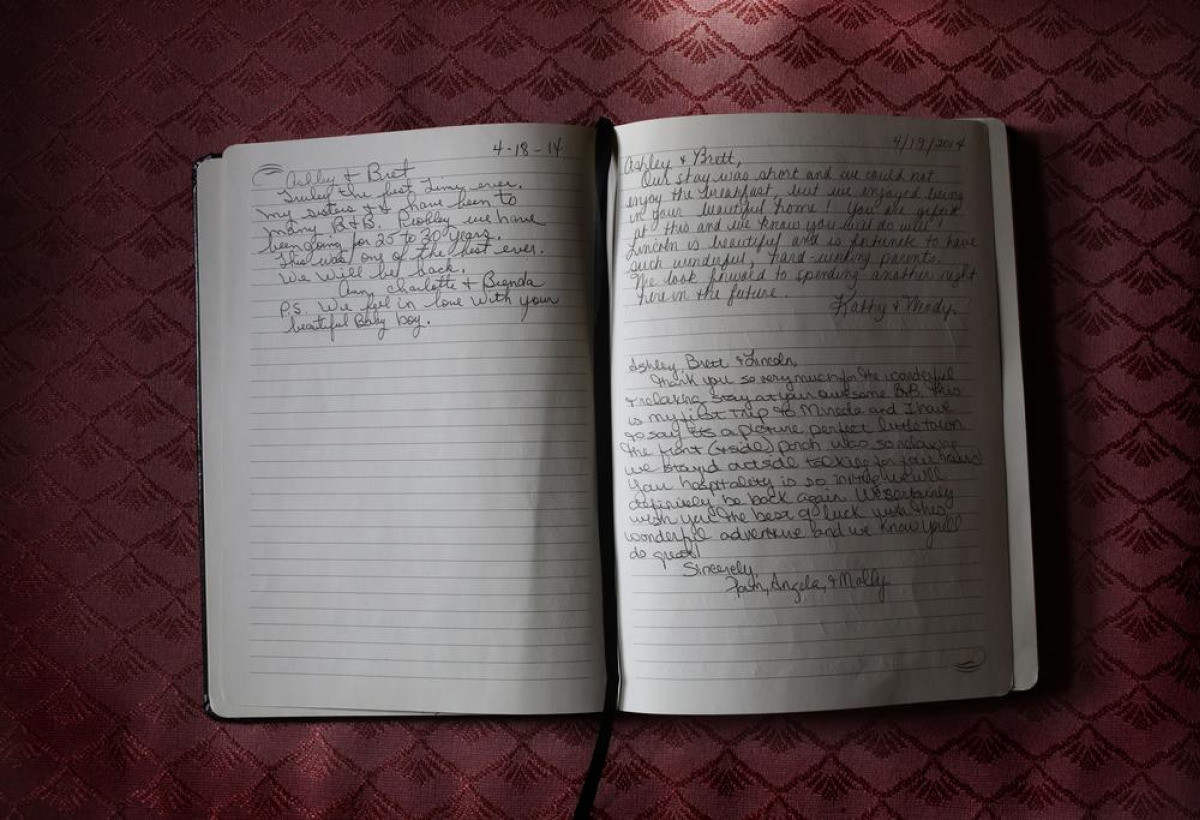 4-18-14
Ashley & Bret
Truley the best time ever.
My sisters & I have been to
many B&B. Probley we have
been going for 25 to 30 years.
This was one of the best ever.
We will be back.
Ann, Charlotte & Brenda
P.S. We fell in love with your
beautiful Baby boy.
4/19/2014
Ashley & Brett,
Our stay was short and we could not
enjoy the breakfast, but we enjoyed being
in your beautiful home! You are gifted
at this and we know you will do well!
Lincoln is beautiful and is fortunate to have
such wonderful, hard-working parents.
We look forward to spending another night
here in the future.
Kathy & Wendy
Ashley, Brett & Lincoln,
Thank you so very much for the wonderful
& relaxing stay at your awesome B&B. This
is my first trip to Mineola and I have
to say its a picture perfect little town
the front (& side) porch was so relaxing
we stayed outside talking for four hours!
Your hospitality is so inviting we will
definitely be back again. We certainly
wish you the best of luck with this
wonderful adventure and we know you'll
do great!
Sincerely,
Angela, & Molly